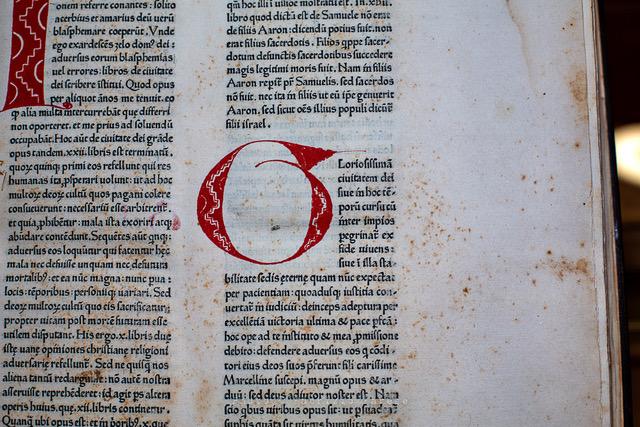 onem referre conantes: solito
acerbius et amarius deū uerū
blasphemare coeperūt. Vnde
ego exardescēs zelo domꝰ dei:
aduersus eorum blasphemias
uel errores: libros de ciuitate
dei scribere īstitui. Quod opus
per aliquot ānos me tenuit. eo
ꝙ alia multa intercurrebāt que differri
non oporteret. et me prius ad soluendū
occupabāt. Hoc aūt de ciuitate dei grāde
opus tandem .xxii. libris est terminatū.
quoꝝ quinqꝫ primi eos refellunt qui res
humanas ita ꝓsperari uolunt: ut ad hoc
multoꝝ deoꝝ cultū quos pagani colere
consueuerunt: necessariū esse arbitrēt
et quia ꝓhibētur: mala ista exoriri atqꝫ
abūdare contēdunt. Sequētes aūt qnqꝫ:
aduersus eos loquūtur qui fatentur hęc
mala nec defuisse unquam nec defutura
mortalibꝰ: et ea nūc magna: nunc parua:
locis: tēporibus: personisqꝫ uariari. Sed
deoꝝ multoꝝ cultū quo eis sacrificatur:
propter uitam post mortē futuram esse
utilem disputant. His ergo .x. libris due
iste uane opiniones christiane religioni
aduersarie refellunt. Sed ne quisqꝫ nos
aliena tantū redarguisse: nō autē nostra
asseruisse reprehēderet: id agit ps altera
operis huius, que .xii. libris continetur.
Quanqꝫ ubi opus est: et in
qm hoc illi
libro quod dictū est de Samuele nō erat
de filiis Aaron: dicendū potius fuit. non
erat filius sacerdotis. Filios qppe sacer-
dotum defunctis sacerdotibus succedere
magis legitimi moris fuit. Nam in filiis
Aaron repīt pr̄ Samuelis. sed sacerdos
nō fuit. nec ita in filiis ut eū ipse genuerit
Aaron. sed sicut oēs illius populi dicūt
filii israel.
G
Loriosissimā
ciuitatem dei
siue in hoc tē-
porū cursu cū
inter impios
peregrinat ex
fide uiuens:
siue ī illa sta-
bilitate sedis eterne quam nūc expectat
per pacientiam: quoadusqꝫ iustitia con-
uertat in iudiciū: deinceps adeptura per
excellētiā uictoria ultima & pace pfcā:
hoc ope ad te instituto & mea ꝓmissione
debito: defendere aduersus eos q cōdi-
tori eius deos suos pferunt: fili carissime
Marcelline suscepi. magnū opus & ar-
duū: sed deus adiutor noster est. Nam
scio qbus uiribus opus sit: ut psuadeat
suphis quāta sit uirtus humilitatis. qua